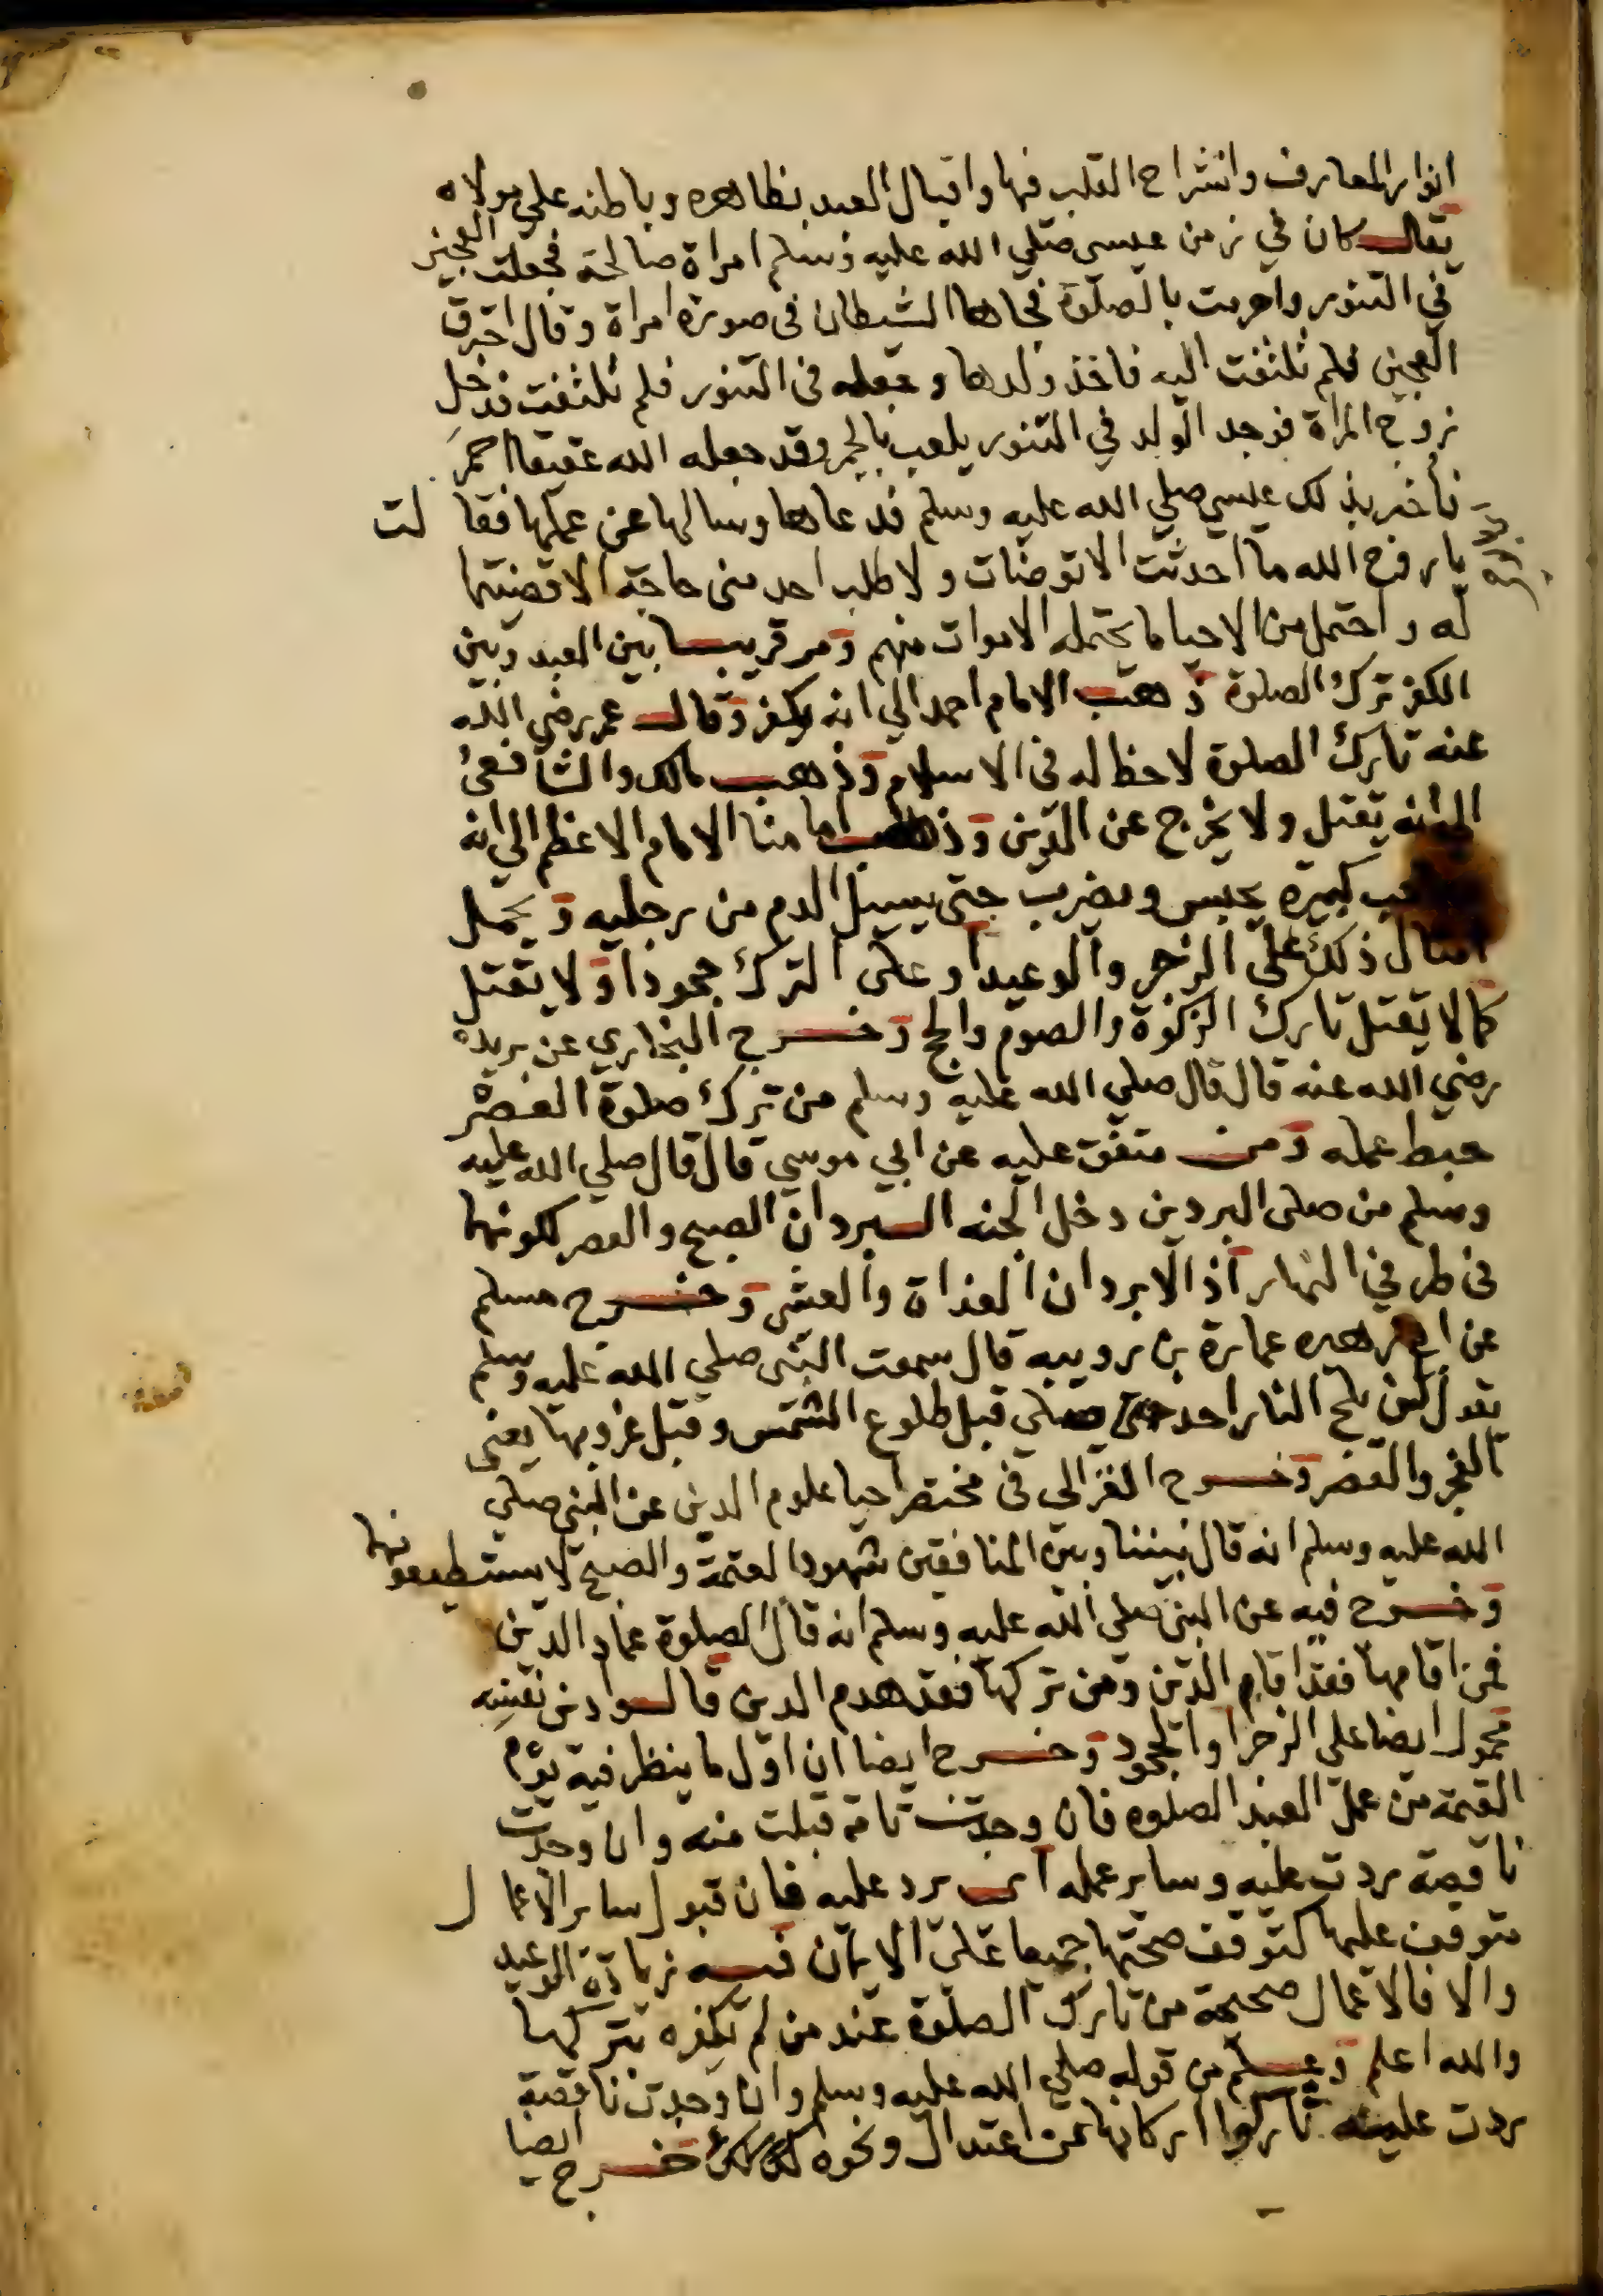 انوار المعارف وانشراح القلب فيها واقبال العبد بظاهره وباطنه علي مولاه
يقال كان في زمن عيسى صلي الله عليه وسلم امراة صالحة فجعلت العجين
في التنور واحرمت بالصلوة فجاها الشيطان فى صورة امراة وقال احترق
العجين فلم تلتفت اليه فاخذ ولدها وجعله فى التنور فلم تلتفت فدخل
زوج المراة فوجد الولد في التنور يلعب بالجمر وقد جعله الله عقيقا احمر
فاخبر بذلك عيسي صلي الله عليه وسلم فدعاها وسالها عن عملها فقالت
يا روح الله ما احدثت الا توضات ولا طلب احد منى حاجة الا قضيتها
له واحتمل من الاحيا ما يحتمله الاموات منهم ومر قريبا بين العبد وبين
الكفر ترك الصلوة ذهب الامام احمد الي انه يكفر وقال عمر رضي الله
عنه تارك الصلوة لا حظ له فى الاسلام وذهب مالك والشافعي
الي انه يقتل ولا يخرج عن الدين وذهب امامنا الامام الاعظم الي انه
كبيرة يحبس ويضرب حتى يسيل الدم من رجليه ويحمل
امثال ذلك على الزجر والوعيد او على الترك جحودا ولا يقتل
كما لا يقتل تارك الزكوة والصوم والحج وخرج البخاري عن بريدة
رضي الله عنه قال قال صلي الله عليه وسلم من ترك صلوة العصر
حبط عمله ومن متفق عليه عن ابي موسي قال قال صلي الله عليه
وسلم من صلى البردين دخل الجنه البردان الصبح والعصر لكونهما
فى طرفي النهار اذ الابردان الغداة والعشي وخرج مسلم
عن ابي زهير عمارة بن رويبه قال سمعت النبي صلي الله عليه وسلم
يقول لن يلج النار احد صلي قبل طلوع الشمس وقبل غروبها يعنى
الفجر والعصر وخرج الغزالي فى مختصر احيا علوم الدين عن النبي صلي
الله عليه وسلم انه قال بيننا وبين المنافقين شهود العتمة والصبح لا يستطيعونهما
وخرج فيه عن النبي صلي الله عليه وسلم انه قال الصلوة عماد الدين
فمن اقامها فقد اقام الدين ومن تركها فقد هدم الدين قالوا دين نفسه
محمول ايضا على الزجر او الجحود وخرج ايضا ان اول ما ينظر فيه يوم
القيمة من عمل العبد الصلوه فان وجدت تامة قبلت منه وان وجدت
ناقصة ردت عليه وساير عمله اى يرد عليه فان قبول ساير الاعمال
متوقف عليها كتوقف صحتها جميعا على الايمان فيه زيادة الوعيد
والا فالاعمال صحيحة من تارك الصلوة عند من لم يكفره بتركها
والله اعلم وعلم من قوله صلي الله عليه وسلم وان وجدت ناقصة
ردت عليه تاركوا اركانها من اعتدال ونحوه خرج ايضا